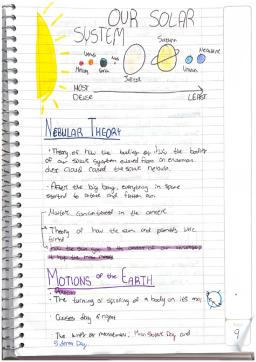 OUR SOLAR
SYSTEM
Saturn
Neptune
Venus
Mars
Mercury Earth
Jupiter
Uranus
MOST
DENSE LEAST
NEBULAR THEORY
• Theory of how the bodies
of our solar system evolved from an enormous
cloud called the solar nebula.
• After the big bang, everything in space
started to rotate and
Matter concentrated in the center
• Theory of how the sun and planets were
first
MOTIONS of the EARTH
• The turning or spinning of a body on its
Causes day & night
Two kinds of measurement, Mean Solar Day and
Sidereal Day
9